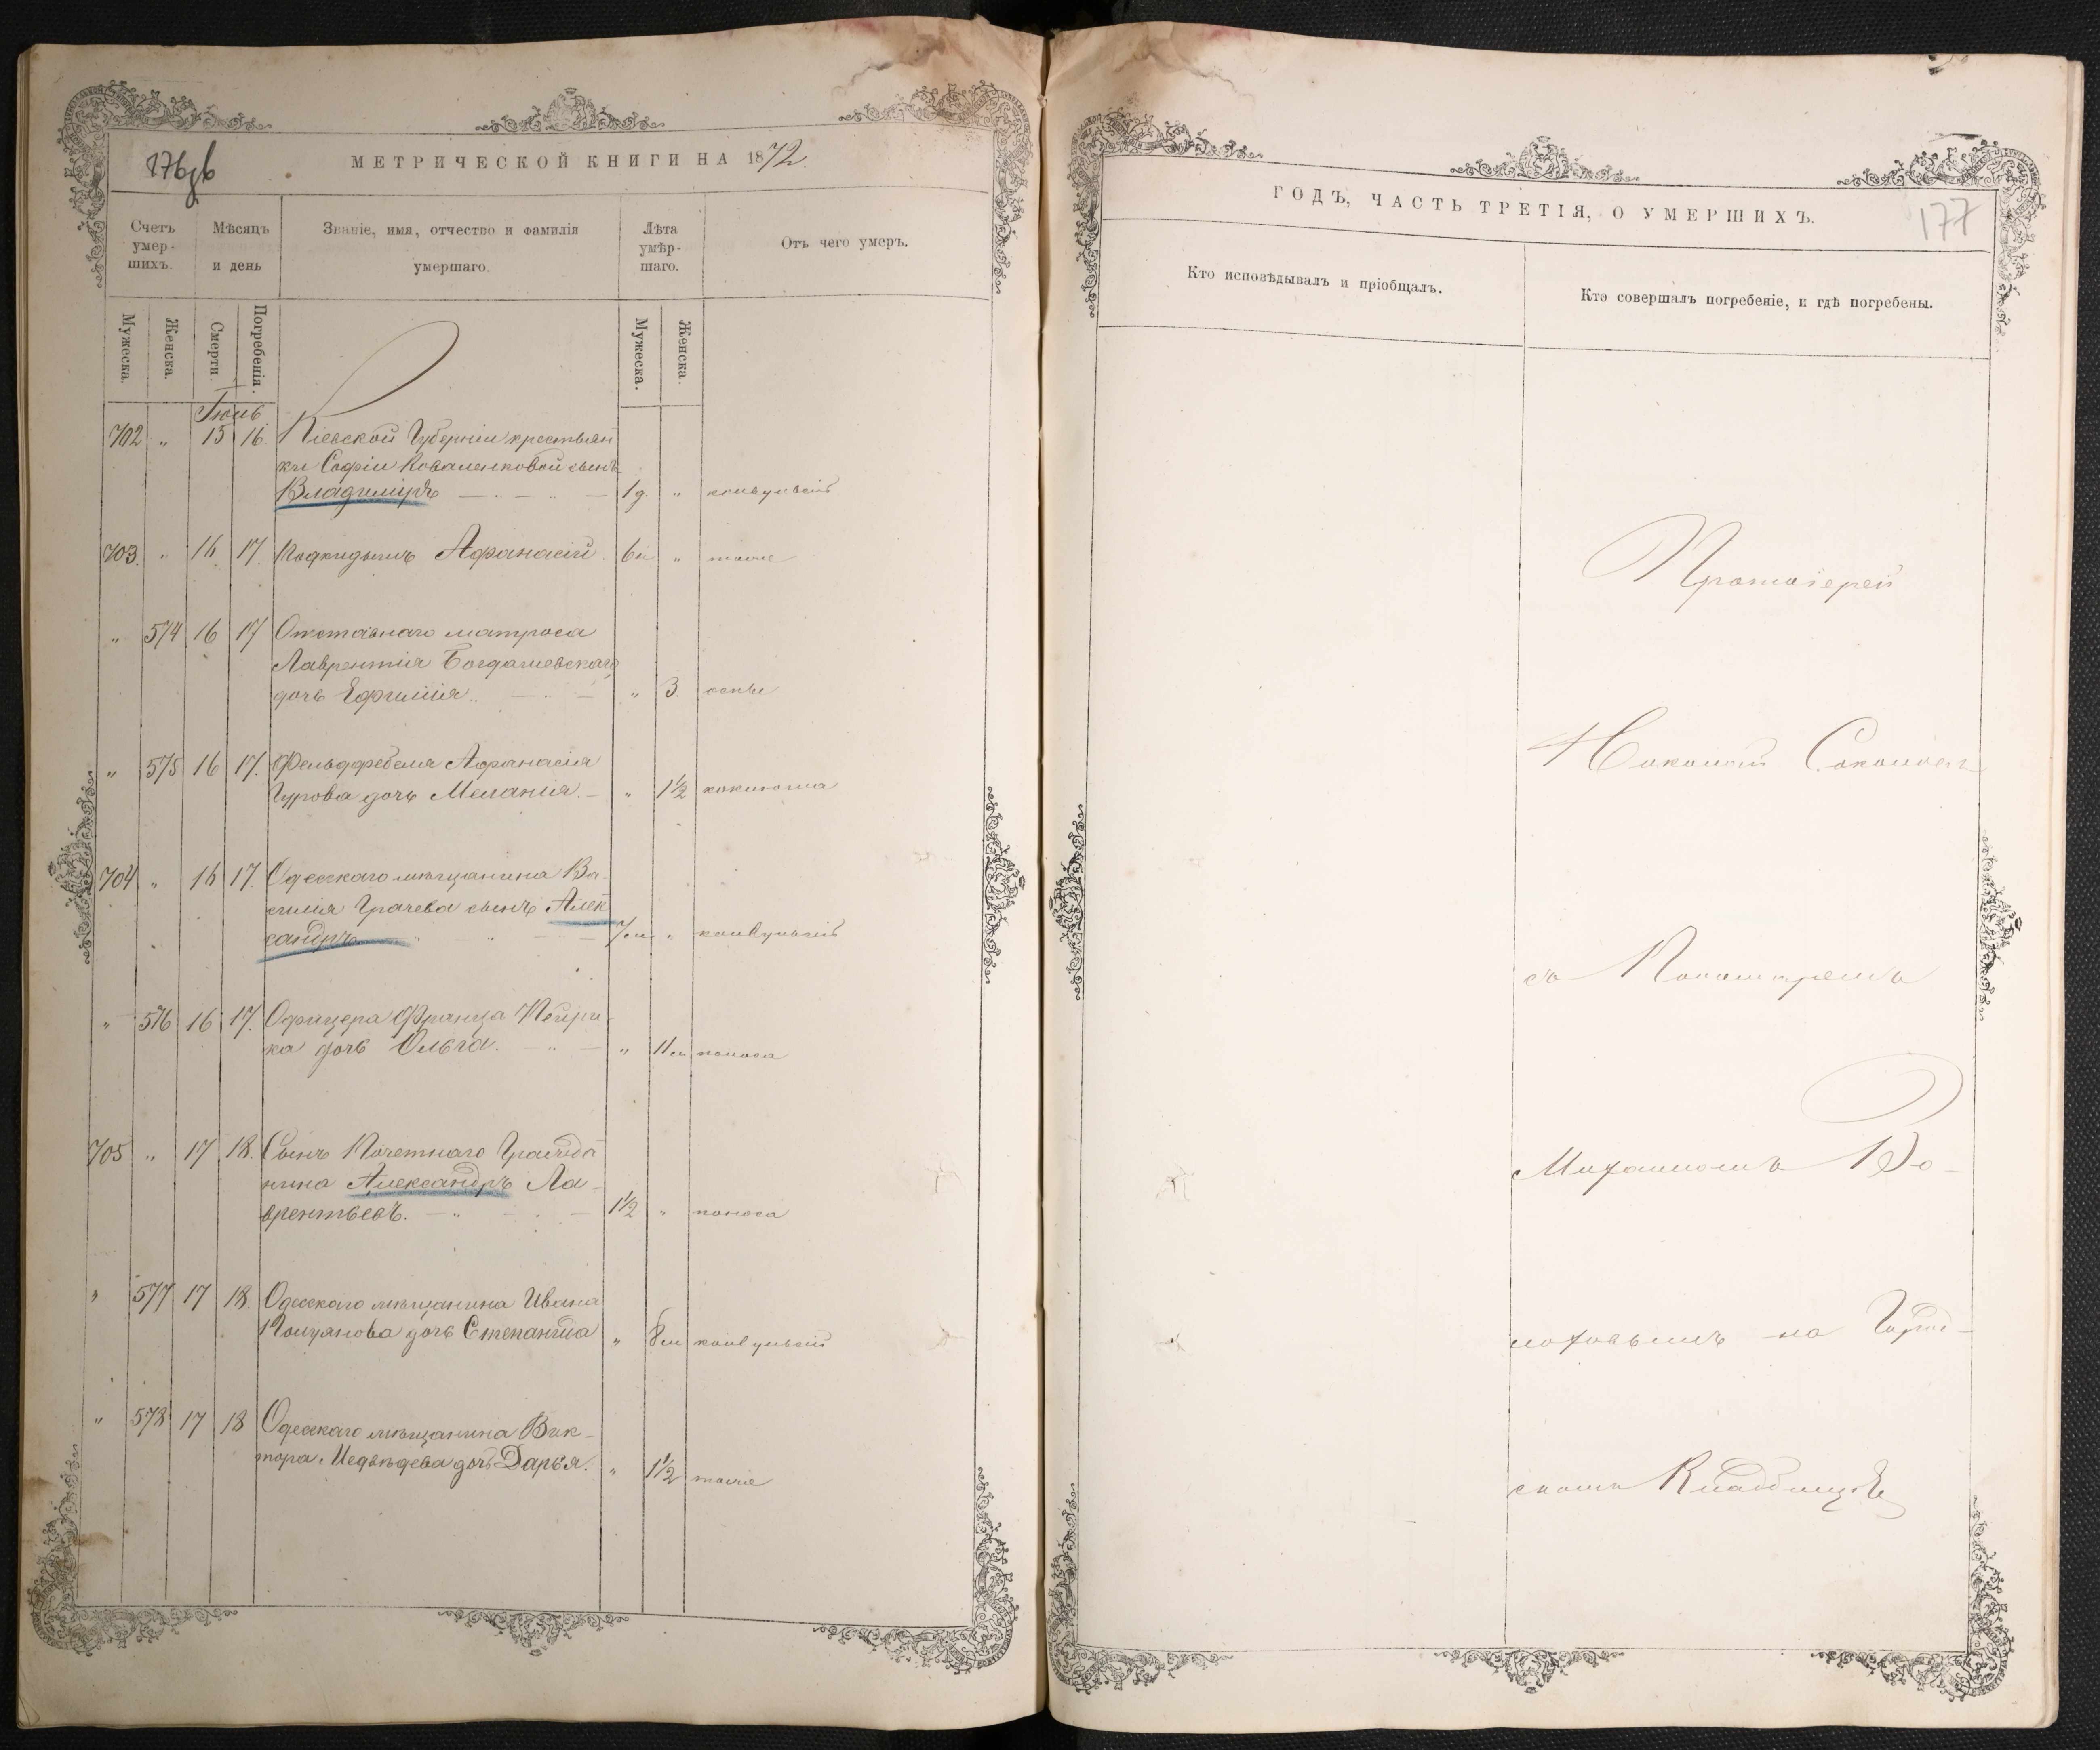 176зв
МЕТРИЧЕСКОЙ КНИГИ НА 1872
Счетъ умер-шихъ.
Мѣсяцъ и день
Званіе, имя, отчество и фамилія умершаго.
Лѣта умѣр-шаго.
Отъ чего умеръ.
Мужеска.
Женска.
Смерти.
Погребенія.
Мужеска.
Женска.
Іюнь
702 „ 15 16. Кіевской Губерніи крестьян
ки Софіи Коваленковой сынъ
Владиміръ 1д. „ конвульсій
703. „ 16 17. Подкидышъ Афанасій. „ тоже
„ 574 16 17 Отставнаго матроса
Лаврентія Богдашевскаго
дочь Ефимія. „ 3. оспы
„ 575 16 17. Фельдфебеля Афанасія
Гурова дочь Меланія. „ 1½ коклюша
704 „ 16 17. Одесскаго мѣщанина Ва-
силія Грачева сынъ Алек
сандръ 7м „ конвульсій
„ 576 16 17. Офицера Франца
ка дочь Ольга. „ 11м поноса
705 „ 17 18. Сынъ Почетнаго Гражда
нина Александръ Ла-
врентьевъ. 1½ „ поноса
„ 577 17 18. Одесскаго мѣщанина Ивана
дочь Степанида „ 8м конвульсій
„ 578 17 18 Одесскаго мѣщанина Вик-
тора Медвѣдева дочь Дарья. „ 1½ тоже
177
ГОДЪ, ЧАСТЬ ТРЕТІЯ, О УМЕРШИХЪ.
Кто исповѣдывалъ и пріобщалъ.
Кто совершалъ погребеніе, и гдѣ погребены.
Протоіерей
Николай Соколовъ
съ
Михаиломъ Во-
лоховымъ на Город-
скомъ Кладбищѣ